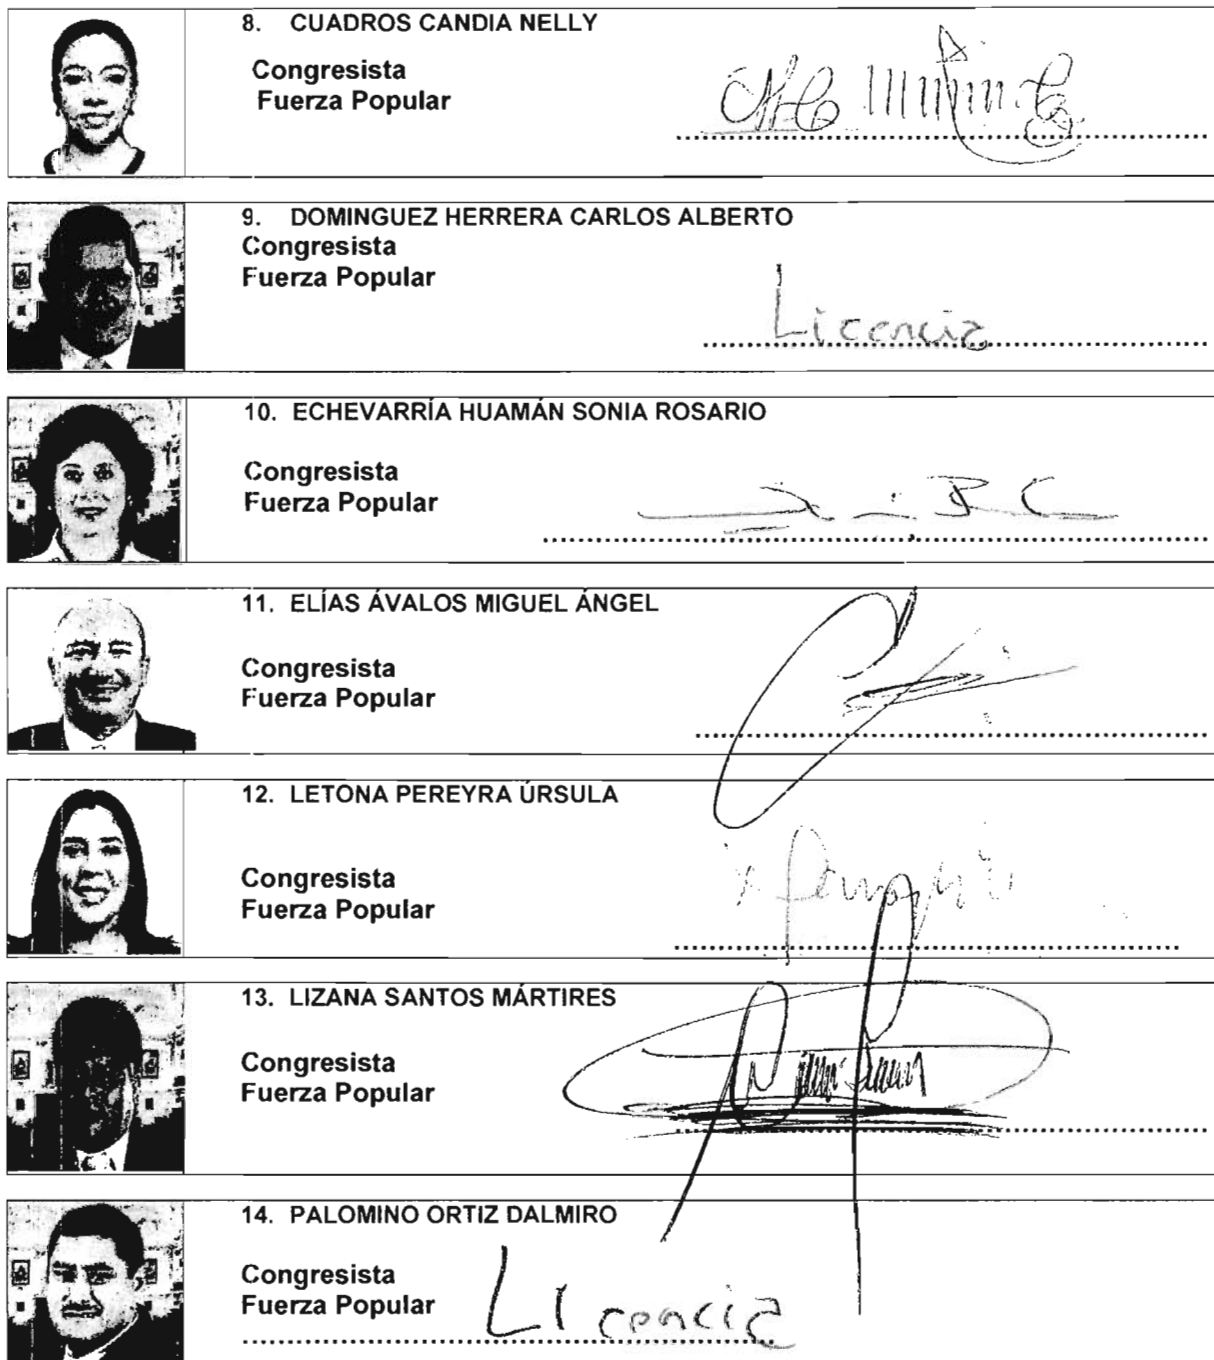 8. CUADROS CANDIA NELLY
Congresista
Fuerza Popular
9. DOMINGUEZ HERRERA CARLOS ALBERTO
Congresista
Fuerza Popular
Licencia
10. ECHEVARRÍA HUAMÁN SONIA ROSARIO
Congresista
Fuerza Popular
11. ELÍAS ÁVALOS MIGUEL ÁNGEL
Congresista
Fuerza Popular
12. LETONA PEREYRA ÚRSULA
Congresista
Fuerza Popular
13. LIZANA SANTOS MÁRTIRES
Congresista
Fuerza Popular
14. PALOMINO ORTIZ DALMIRO
Congresista
Fuerza Popular
Licencia